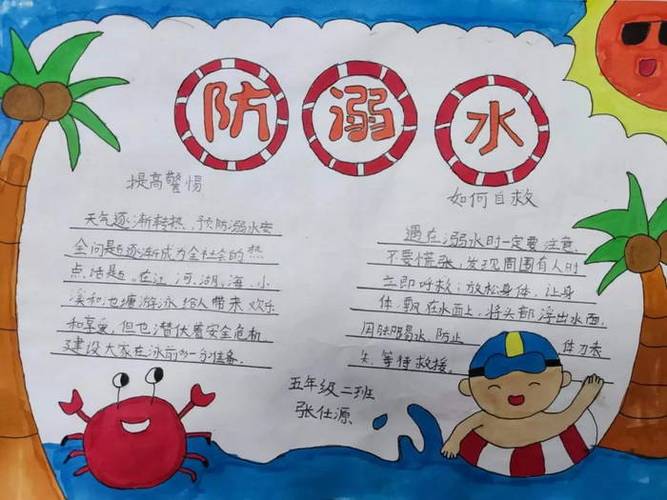 防溺水
提高警惕
天气逐渐转热,预防溺水安
全问题逐渐成为全社会的热
点话题。在江、河、湖、海、小
溪和池塘游泳给人带来欢乐
和享受,但也潜伏着安全危机
建设大家在泳前多一分准备.
如何自救
遇在溺水时一定要注意,
不要慌张,发现周围有人时
立即呼救;放松身体,让身
体飘在水面上,将头部浮出水面,
用脚踢水,防止 体力丧
失,等待救援。
五年级二班
张仕源